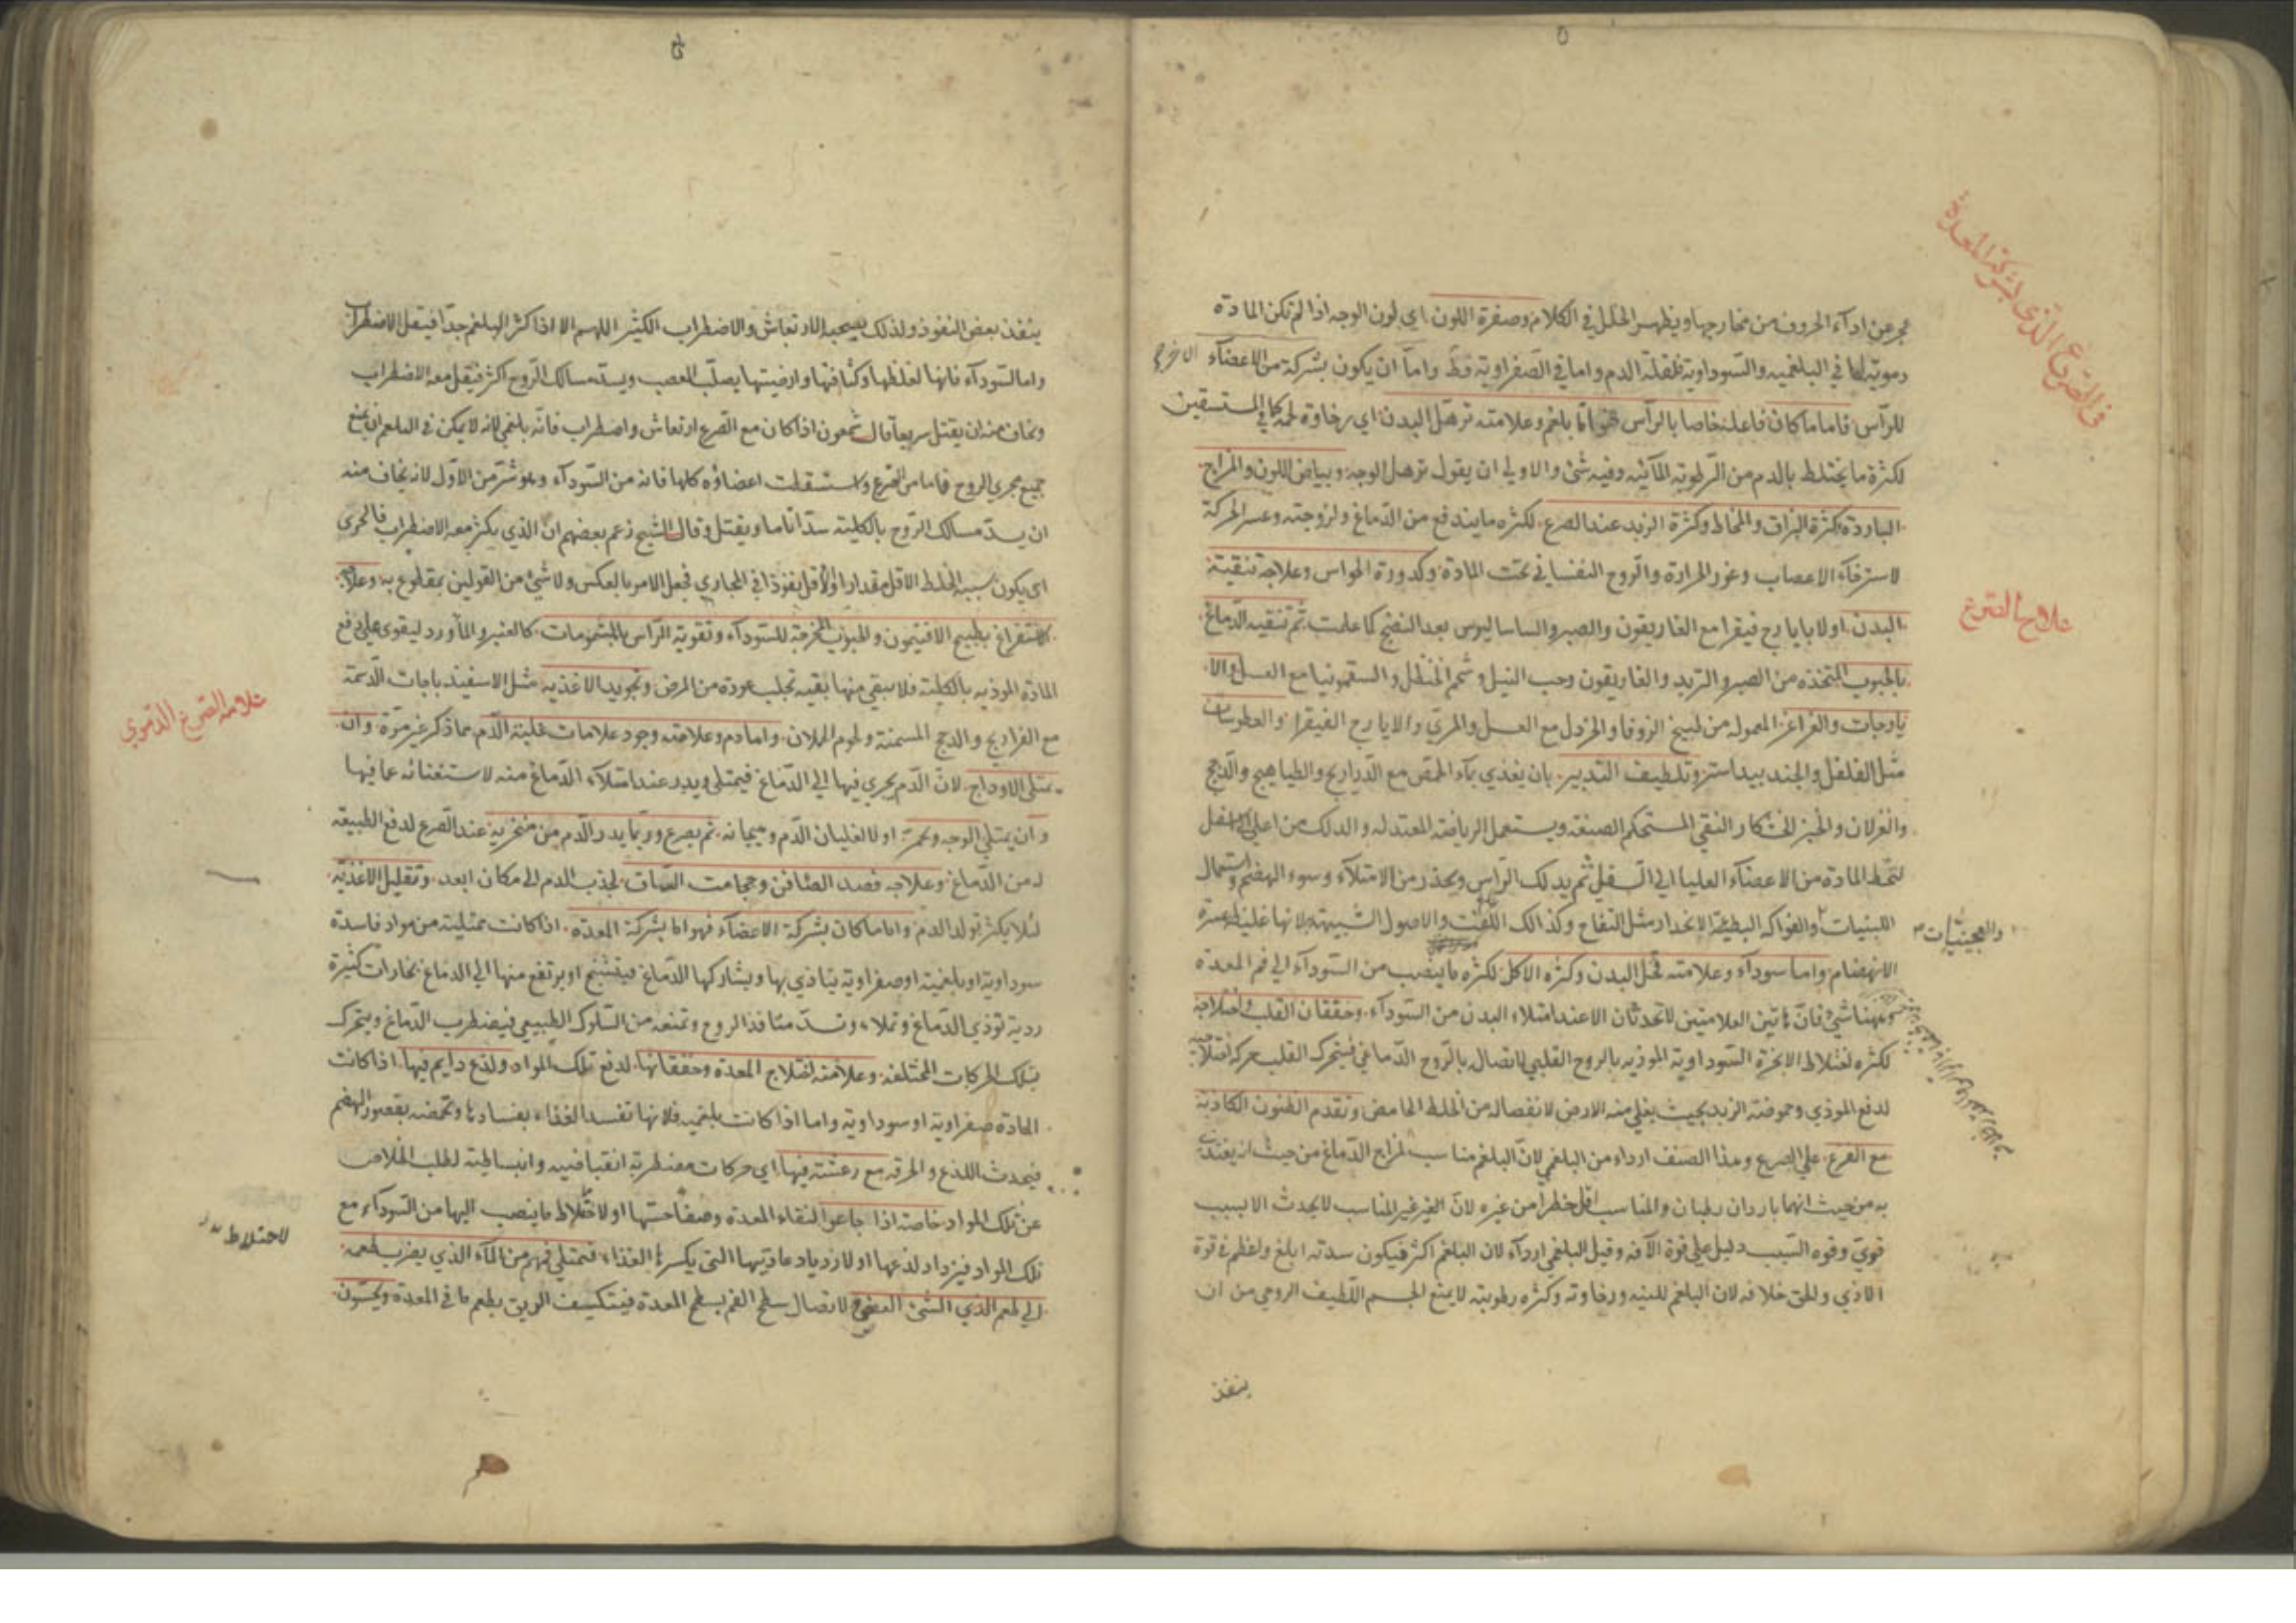 في الصرع الذي بشركة المعدة
عن اداء الحروف من مخارجها ويظهر الخلل في الكلام وصفرة اللون اي لون الوجه اذا لم تكن المادة
دموية اما في البلغمية والسوداوية فلقلة الدم واما في الصفراوية فقط واما ان يكون بشركة من الاعضاء
للراس فاما ما كان فاعله خاصا بالراس فهو اما بلغم وعلامته ترهل البدن اي رخاوة لحمه كما في المستسقين
لكثرة ما يختلط بالدم من الرطوبة المآئية وفيه شئ والاولى ان يقول ترهل الوجه وبياض اللون والمزاج
البارد وكثرة البزاق والمخاط وكثرة الزبد عند الصرع لكثرة ما يندفع من الدماغ ولزوجته وعسر الحركة
لاسترخاء الاعصاب وغور الحرارة والروح النفساني تحت المادة وكدورة الحواس وعلاجه تنقية
علاج الصرع
البدن اولا بايارج فيقرا مع الغاريقون والصبر والساساليوس بعد النضج كما علمت ثم تنقية الدماغ
بالحبوب المتخذة من الصبر والتربد والغاريقون وحب النيل وشحم الحنظل والسقمونيا مع العسل والا
يارجات والغراغر المعمولة من طبيخ الزوفا والخردل مع العسل والمري والايارج الفيقرا والعطوسات
مثل الفلفل والجندبيداستر وتلطيف التدبير بان يغذي بماء الحمص مع الدراريج والطياهيج والدجج
والغزلان والخبز الخشكار النقي المستحكم الصنعة ويستعمل الرياضة المعتدلة والدلك من اعلى الى اسفل
لتحط المادة من الاعضاء العليا الى السفلى ثم يدلك الراس ويحذر من الامتلاء وسوء الهضم واستعمال
اللبنيات والفواكه البطيئة الانحدار مثل التفاح وكذالك اللفت والاصول الشبيهة لانها غليظة عسرة
والعجينيات
الانهضام واما سوداء وعلامته قحل البدن وكثرة الاكل لكثرة ما ينصب من السوداء الى فم المعدة
وههنا شئ فان هاتين العلامتين لاتحدثان الا عند امتلاء البدن من السوداء وخفقان القلب واختلاجه
لكثرة اختلاط الابخرة السوداوية الموذية بالروح القلبي لاتصاله بالروح الدماغي فيتحرك القلب حركة اختلاجية
لدفع الموذي وحموضة الزبد بحيث يغلي منه الارض لانفصاله من الخلط الحامض وتقدم الظنون الكاذبة
مع الفزع على الصرع وهذا الصنف ارداء من البلغمي لان البلغم مناسب لمزاج الدماغ من حيث انه يغتذي
به من حيث انهما باردان رطبان والمناسب اقل خطرا من غيره لان الغير المناسب لا يحدث الا بسبب
قوي وقوه السبب دليل على قوة الآفة وقيل البلغمي ارداء لان البلغم اكثر فيكون سدته ابلغ واعظم في قوة
الاذي والحق خلافه لان البلغم للينه ورخاوته وكثرة رطوبته لا يمنع الجسم اللطيف الروحي من ان
ينفذ
ينفذ بعض النفوذ ولذلك يصحبه الارتعاش والاضطراب الكثير اللهم الا اذا كثر البلغم جدا فيقل الاضطراب
واما السوداء فانها لغلظها وكثافتها وارضيتها يصلب العصب ويسد مسالك الروح اكثر فيقل معه الاضطراب
ويخاف منه ان يقتل سريعا قال شمعون اذا كان مع الصرع ارتعاش واضطراب فانه بلغمي لانه لا يمكن في البلغم ان يمنع
جميع مجري الروح فاما من صرع واستثقلت اعضاؤه كلها فانه من السوداء وهو شر من الاول لانه يخاف منه
ان يسد مسالك الروح بالكلية سدا تاما ويقتل وقال الشيخ زعم بعضهم ان الذي يكثر معه الاضطراب فالحري
ان يكون سببه الخلط الاقل مقدارا والاقل نفوذا في المجاري فجعل الامر بالعكس ولا شئ من القولين بمقطوع به وعلاجه
الاستفراغ بطبيخ الافتيمون والحبوب المخرجة للسوداء وتقوية الراس بالمشمومات كالعنبر والماورد ليقوى على دفع
المادة الموذيه بالكلية فلا يبقى منها بقية تجلب عودة من المرض وتجويد الاغذية مثل الاسفيذباجات الدسمة
مع الفراريج والدجج المسمنة ولحوم الحملان واما دم وعلامته وجود علامات غلبة الدم مما ذكر غير مرة وان
علامة الصرع الدموي
تمتلى الاوداج لان الدم يجري فيها الى الدماغ فيمتلى ويدر عند امتلاء الدماغ منه لاستغنائه عما فيها
وان يمتلي الوجه ويحمر اولا لغليان الدم وهيجانه ثم يصرع وربما يدر الدم من منخريه عند الصرع لدفع الطبيعة
له من الدماغ وعلاجه فصد الصافن وحجامت الساق لجذب الدم الى مكان ابعد وتقليل الاغذية
لئلا يكثر تولد الدم واما ما كان بشركة الاعضاء فهو اما بشركة المعدة اذا كانت ممتلية من مواد فاسدة
سوداوية او بلغمية او صفراوية يتاذي بها ويشاركها الدماغ فيتشنج او يرتفع منها الى الدماغ بخارات كثيرة
ردية توذي الدماغ وتملاء وتسد منافذ الروح وتمنعه من السلوك الطبيعي فيضطرب الدماغ ويتحرك
بتلك الحركات المختلفة وعلامته اختلاج المعدة وخفقانها لدفع تلك المواد ولذع دايم فيها اذا كانت
المادة صفراوية او سوداوية واما اذا كانت بلغمية فلانها تفسد الغذاء بفسادها وتحمضه بقصور الهضم
فيحدث اللذع والحرقة مع رعشة فيها اي حركات مضطربة انقباضية وانبساطية لطلب الخلاص
عن تلك المواد خاصة اذا جاع لنقاء المعدة او لاختلاط ما ينصب اليها من السوداء مع
لاختلاط
تلك المواد فيزداد لذعها او لازدياد عاديتها التى يكسرها الغذاء فتمتلي فمهم من الماء الذي يضرب طعمه
الى طعم الذي الشئ العفص لاتصال سطح الفم بسطح المعدة فيتكيف الريق بطعم ما في المعدة ويحسون